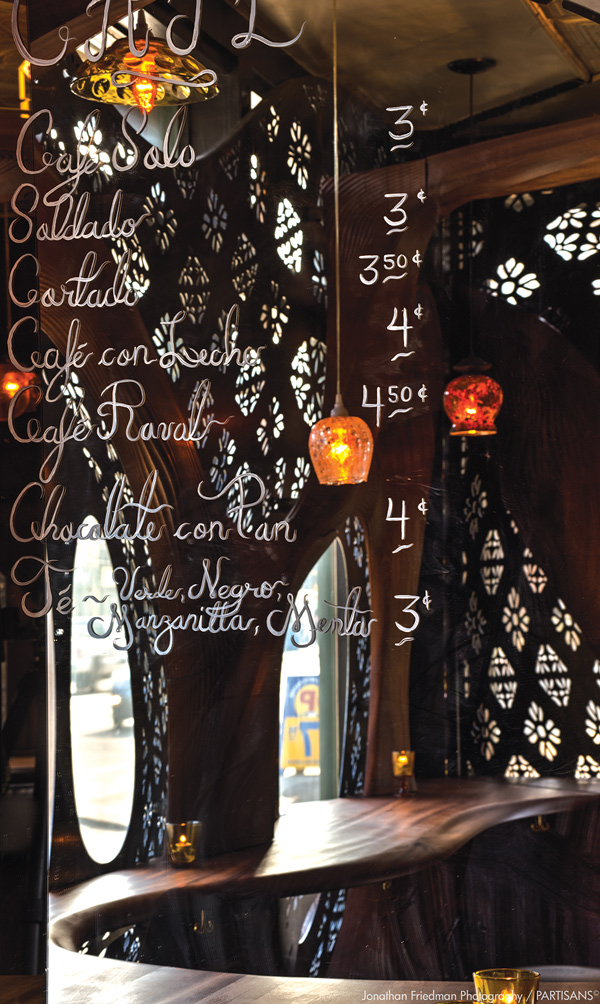 Café Solo 3¢
Soldado 3¢
Cortado 3⁵⁰¢
Café con Leche 4¢
Café Raval 4⁵⁰¢
Chocolate con Pan 4¢
Té ~ Verde, Negro,
Manzanitta, Menta 3¢
P
7
Jonathan Friedman Photography / PARTISANS©